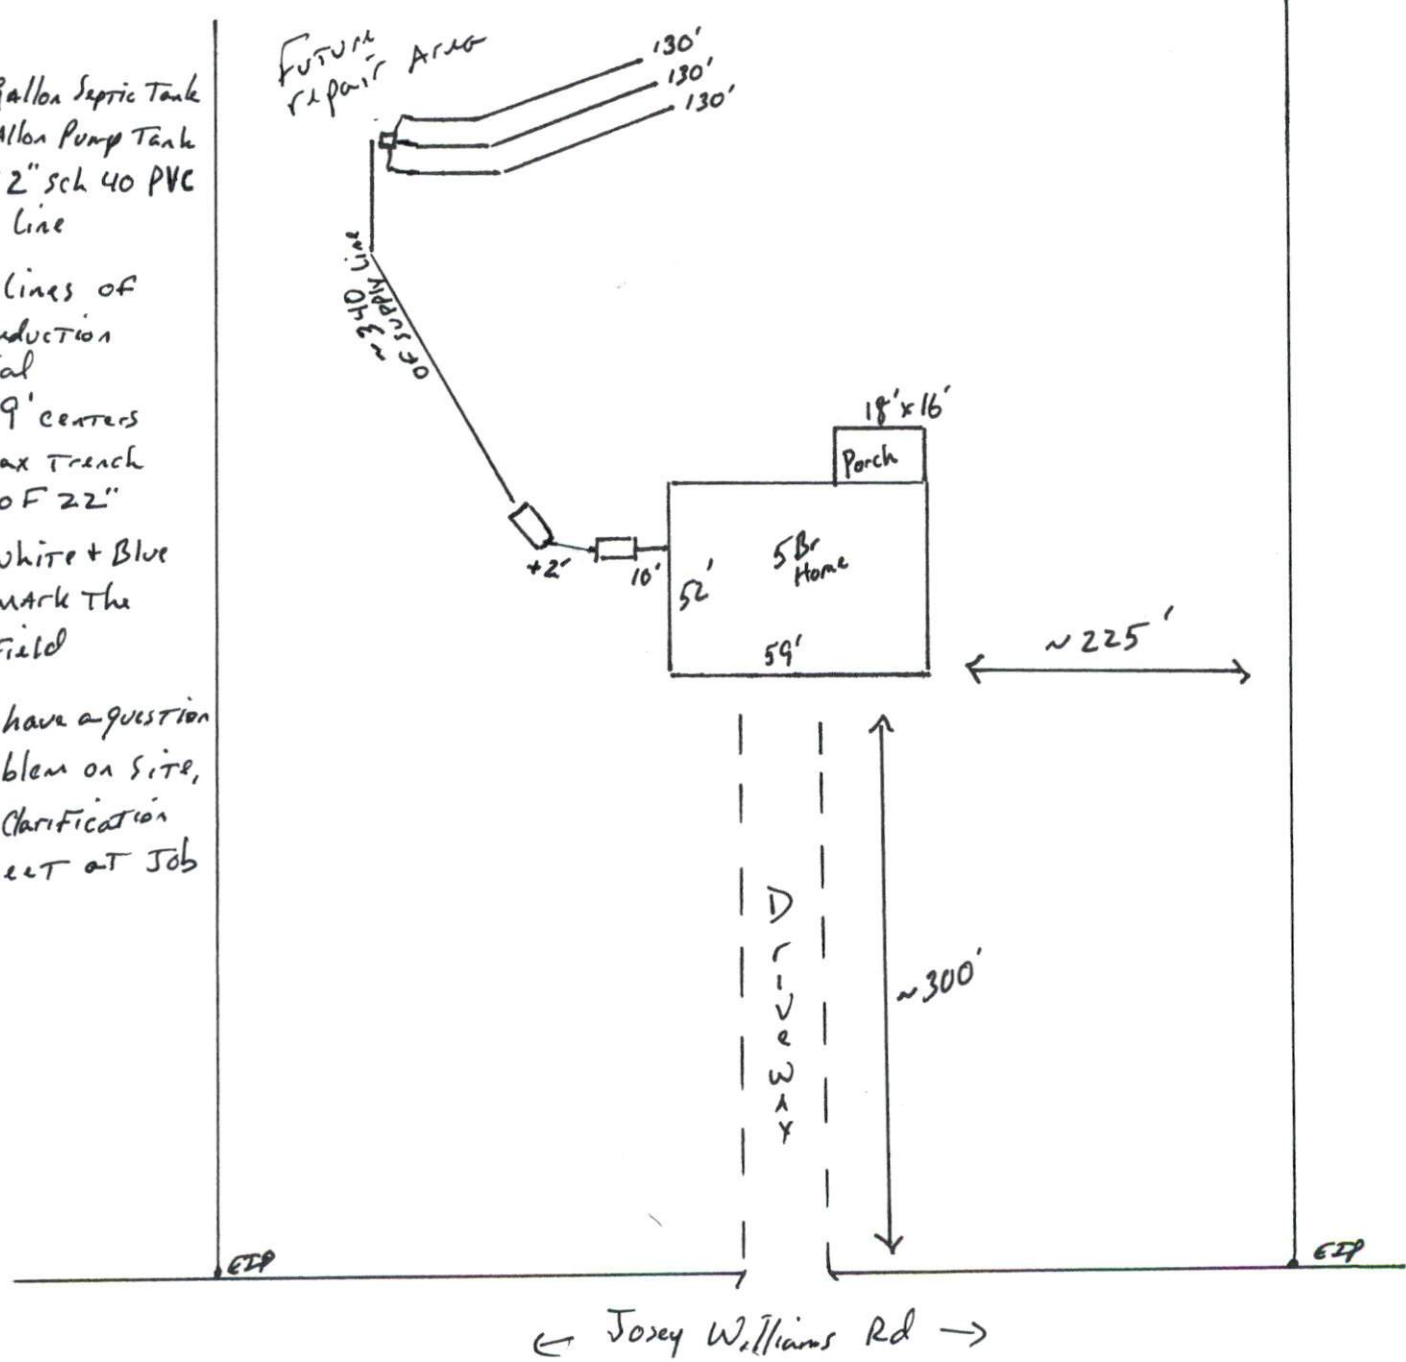 Gallon Septic Tank
Allon Pump Tank
2" sch 40 PVC
Line
Lines of
duction
al
9' centers
ax Trench
OF 22"
White + Blue
MArk The
Field
have a question
blem on Site,
Clarification
eeT aT Job
Future
repair Area
130'
130'
130'
~ 340
of supply Line
18' x 16'
Porch
5 Br
Home
+2'
10'
52'
59'
~225'
Driveway
~300'
EIP
EIP
← Josey Williams Rd →